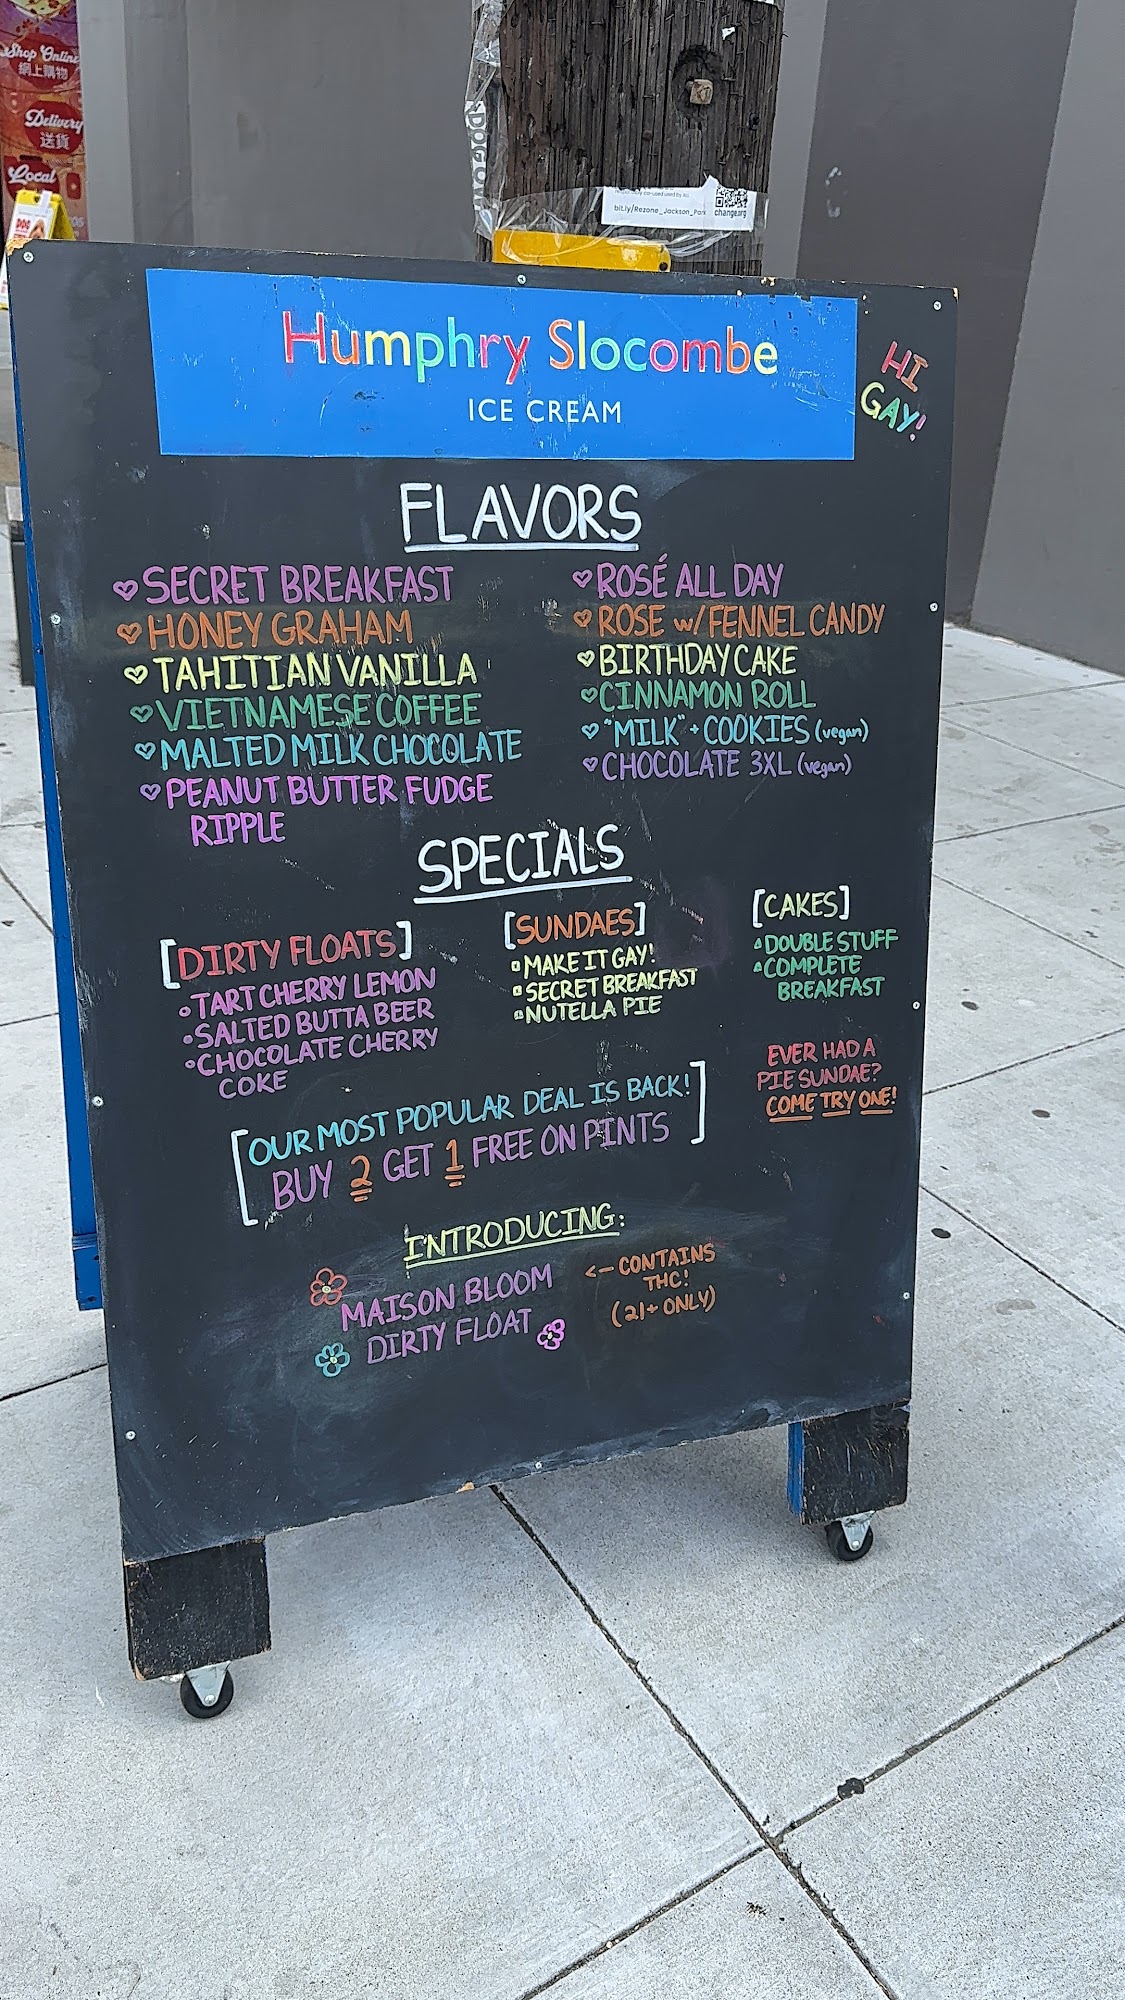 Shop Online
網上購物
Delivery
送貨
Local
DOG
bit.ly/Rezone_Jackson_Park
change.org
Humphry Slocombe
ICE CREAM
HI
GAY!
FLAVORS
SECRET BREAKFAST
HONEY GRAHAM
TAHITIAN VANILLA
VIETNAMESE COFFEE
MALTED MILK CHOCOLATE
PEANUT BUTTER FUDGE
RIPPLE
ROSÉ ALL DAY
ROSE w/ FENNEL CANDY
BIRTHDAY CAKE
CINNAMON ROLL
"MILK" + COOKIES (vegan)
CHOCOLATE 3XL (vegan)
SPECIALS
[DIRTY FLOATS]
TART CHERRY LEMON
SALTED BUTTA BEER
CHOCOLATE CHERRY
COKE
[SUNDAES]
MAKE IT GAY!
SECRET BREAKFAST
NUTELLA PIE
[CAKES]
DOUBLE STUFF
COMPLETE
BREAKFAST
EVER HAD A
PIE SUNDAE?
COME TRY ONE!
[OUR MOST POPULAR DEAL IS BACK!
BUY 2 GET 1 FREE ON PINTS]
INTRODUCING:
MAISON BLOOM
DIRTY FLOAT
<-- CONTAINS
THC!
(21+ ONLY)